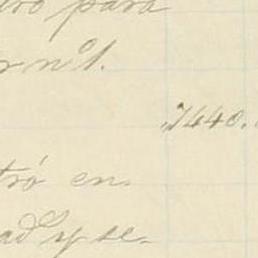 para
r nº 1.
1440.
tró en
ad y se-